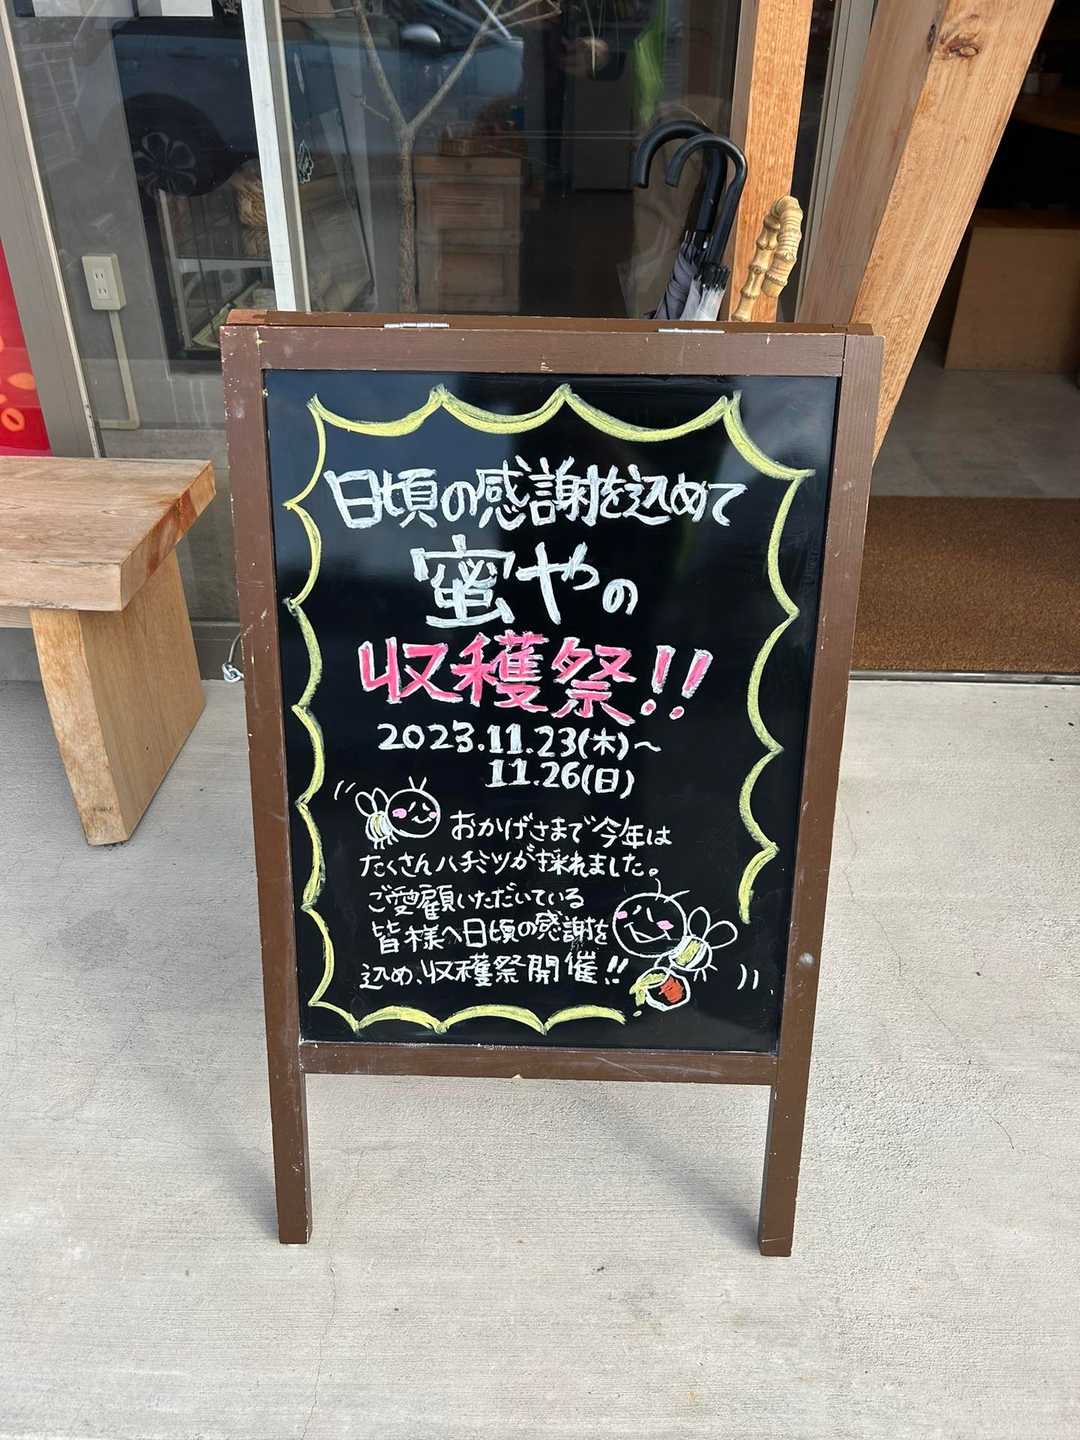 日頃の感謝を込めて
蜜やの
収穫祭!!
2023.11.23(木)~
11.26(日)
おかげさまで今年は
たくさんハチミツが採れました。
ご愛顧いただいている
皆様へ日頃の感謝を
込め、収穫祭開催!!